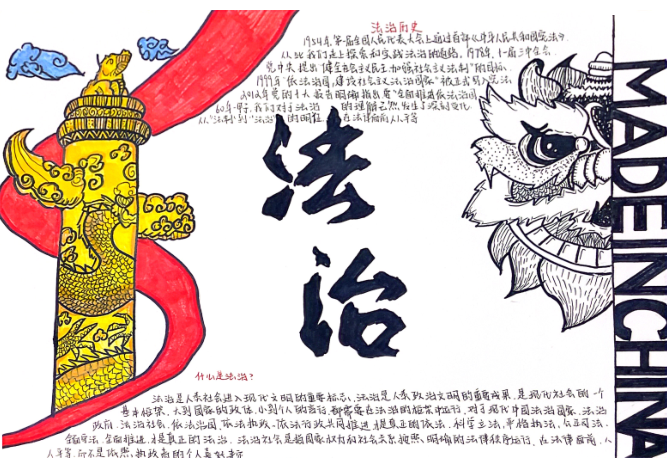 法治历史
1954年,第一届全国人民代表大会上通过首部《中华人民共和国宪法》
从此我们走上探索和实践法治的道路,1978年,十一届三中全会,
党中央提出"健全社会主义民主,加强社会主义法制"的目标,
1999年"依法治国,建设社会主义法治国家"被正式写入宪法,
年党的十大报告明确指出要"全面推进依法治国
60年中,我们对于法治的理解已然发生了深刻变化
从"法制"到"法治"的历程,在法律面前人人平等
法治
MADEINCHINA
什么是法治?
法治是人类社会进入现代文明的重要标志,法治是人类政治文明的重要成果,是现代社会的一个
基本框架,大到国家的政体,小到个人的言行,都需要在法治的框架中运行,对于现代中国法治国家、法治
政府、法治社会,依法治国、依法执政、依法行政共同推进,才是真正的依法,科学立法,严格执法,公正司法,
全民守法,全面推进,才是真正的法治。法治社会是指国家权力和社会关系按照明确的法律秩序运行,在法律面前,人
人平等,而不是依照执政者的个人喜好